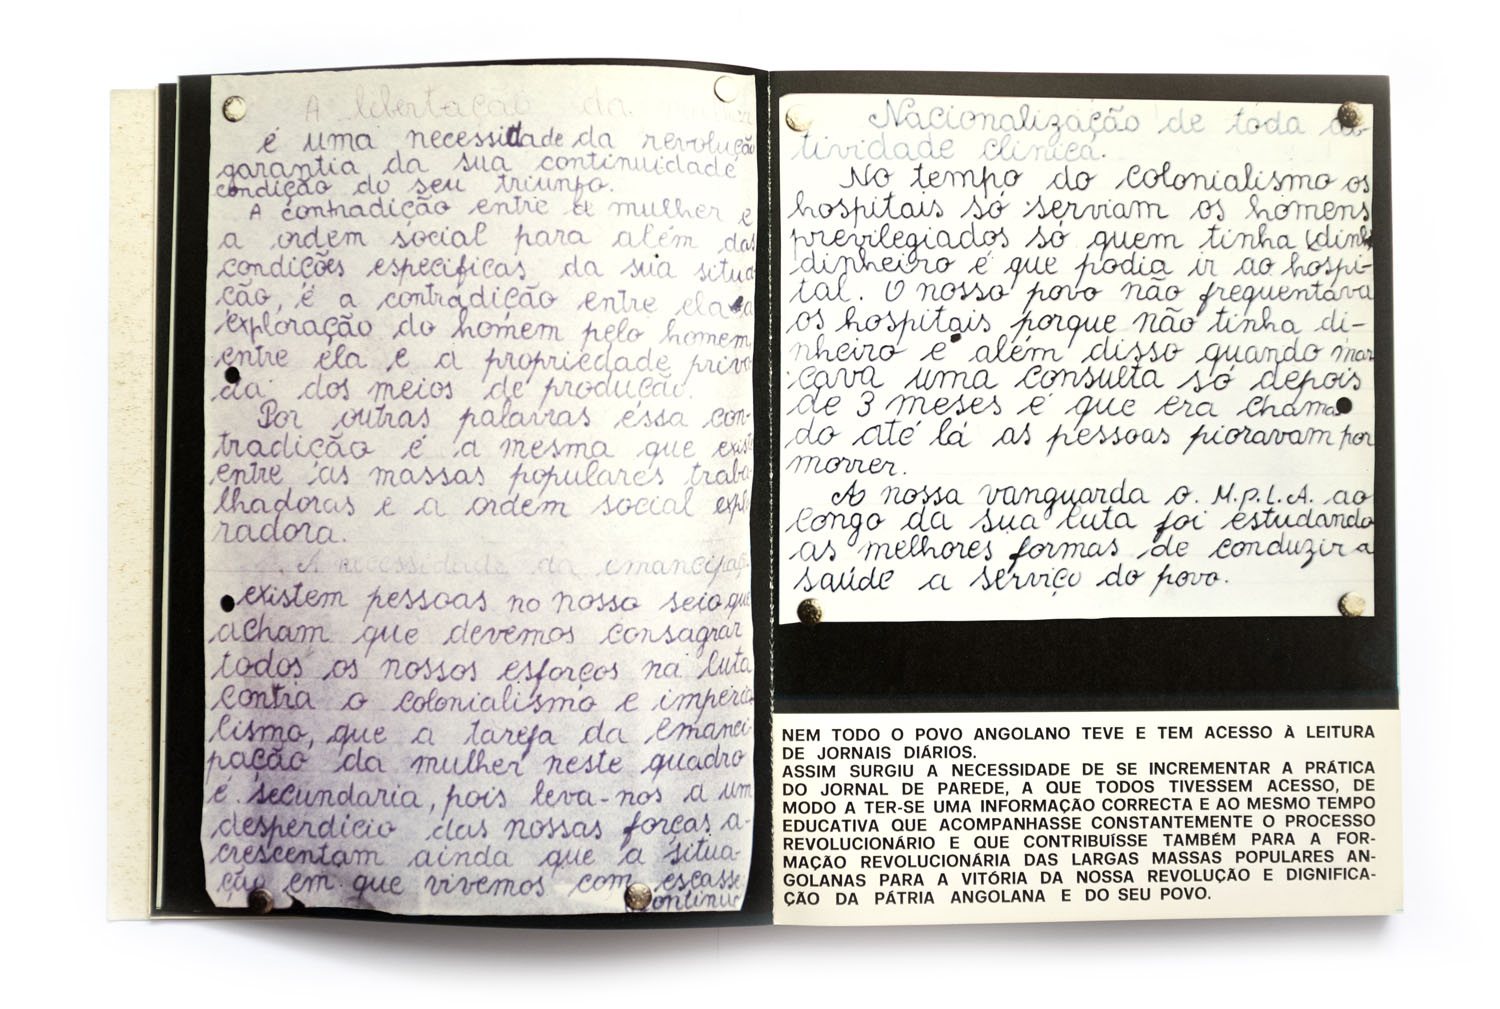 A libertação da
é uma necessidade da revolução
garantia da sua continuidade
condição do seu triunfo.
A contradição entre a mulher e
a ordem social para além das
condições especificas da sua situa
ção, é a contradição entre ela e a
exploração do homem pelo homem
entre ela e a propriedade priva
da dos meios de produção.
Por outras palavras éssa con-
tradição é a mesma que existe
entre as massas populares traba
lhadoras e a ordem social explo
radora.
A necessidade da emancipaç
existem pessoas no nosso seio que
acham que devemos consagrar
todos os nossos esforços na luta
contra o colonialismo e imperia
lismo, que a tarefa da emanci-
pação da mulher neste quadro
é secundaria, pois leva-nos a um
desperdicio das nossas forças a-
crescentam ainda que a situa-
ção em que vivemos com escasse
continua
Nacionalização de toda ac-
tividade clinica.
No tempo do colonialismo os
hospitais só serviam os homens
previlegiados só quem tinha (dinh
dinheiro é que podia ir ao hospi-
tal. O nosso povo não frequentava
os hospitais porque não tinha di-
nheiro e além disso quando mar
cava uma consulta só depois
de 3 meses é que era chama
do até lá as pessoas pioravam por
morrer.
A nossa vanguarda o M.P.L.A. ao
longo da sua luta foi estudando
as melhores formas de conduzir a
saúde a serviço do povo.
NEM TODO O POVO ANGOLANO TEVE E TEM ACESSO À LEITURA
DE JORNAIS DIÁRIOS.
ASSIM SURGIU A NECESSIDADE DE SE INCREMENTAR A PRÁTICA
DO JORNAL DE PAREDE, A QUE TODOS TIVESSEM ACESSO, DE
MODO A TER-SE UMA INFORMAÇÃO CORRECTA E AO MESMO TEMPO
EDUCATIVA QUE ACOMPANHASSE CONSTANTEMENTE O PROCESSO
REVOLUCIONÁRIO E QUE CONTRIBUÍSSE TAMBÉM PARA A FOR-
MAÇÃO REVOLUCIONÁRIA DAS LARGAS MASSAS POPULARES AN-
GOLANAS PARA A VITÓRIA DA NOSSA REVOLUÇÃO E DIGNIFICA-
ÇÃO DA PÁTRIA ANGOLANA E DO SEU POVO.